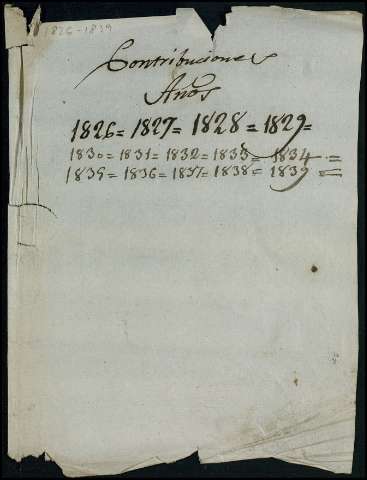 1826-1839
Contribuciones
Años
1826= 1827= 1828= 1829=
1830= 1831= 1832= 1833= 1834=
1835= 1836= 1837= 1838= 1839=